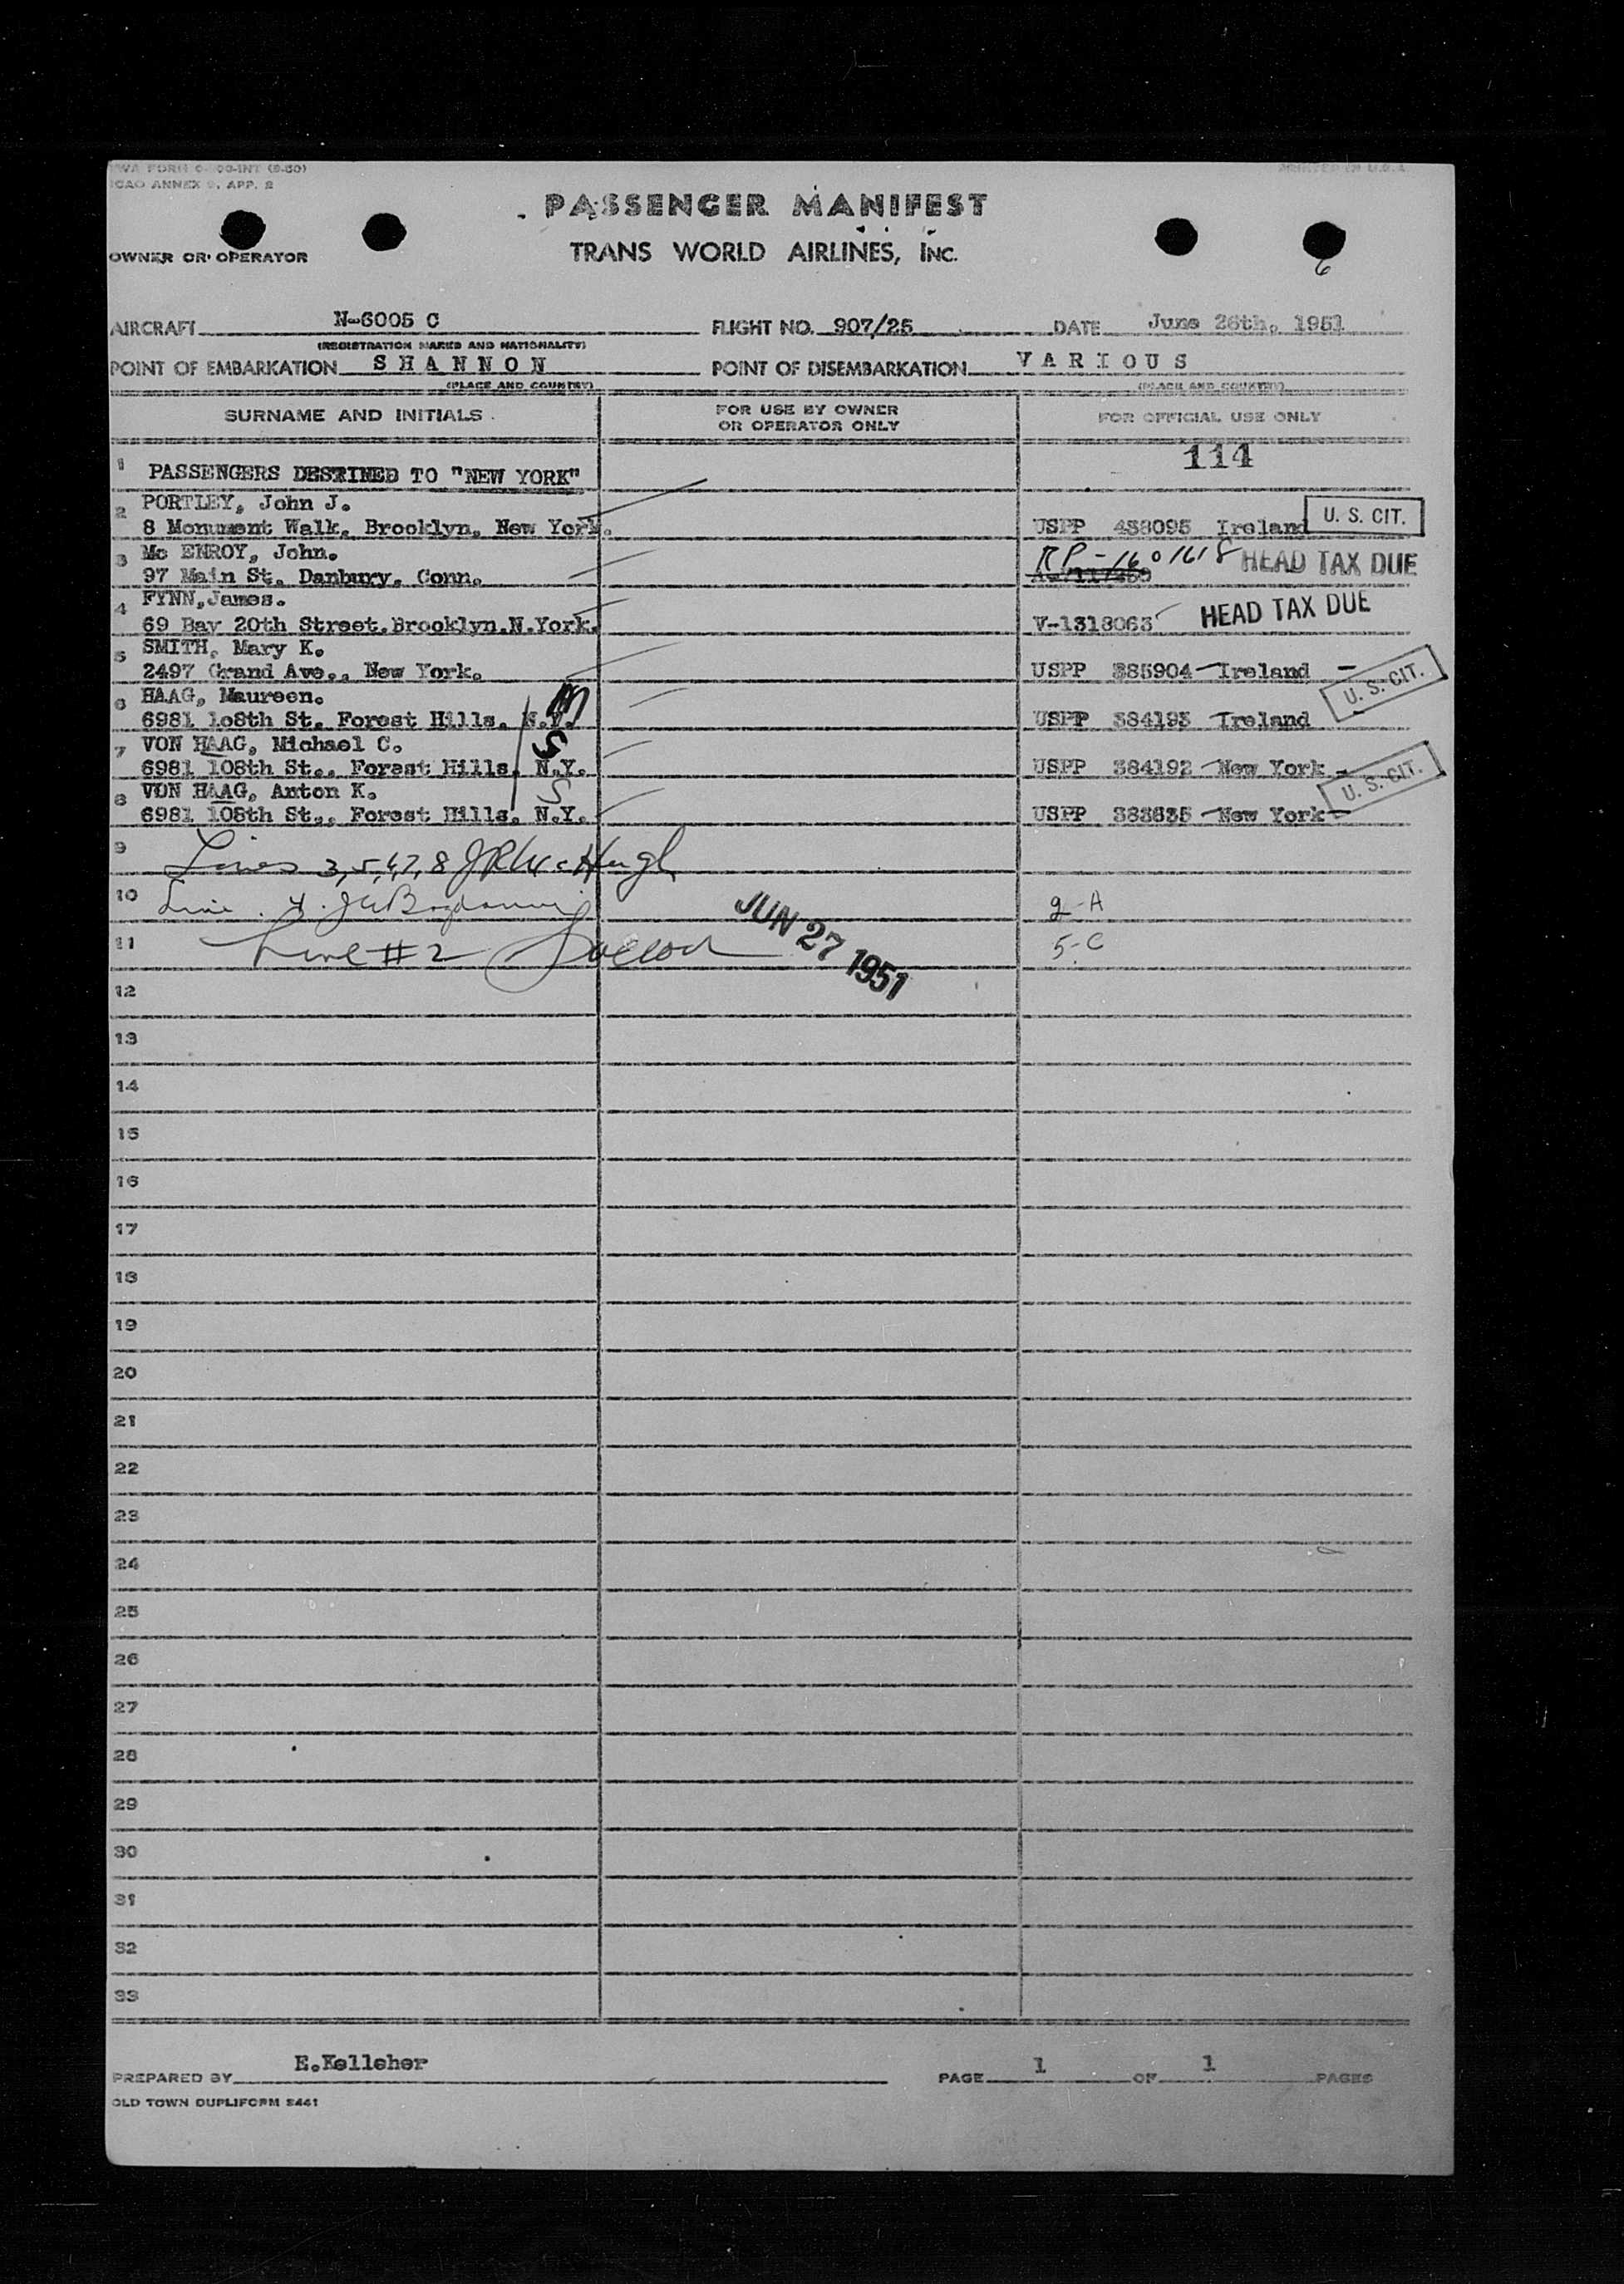 TWA FORM
ICAO ANNEX 9, APP. 2
PRINTED IN U.S.A.
PASSENGER MANIFEST
OWNER OR OPERATOR
TRANS WORLD AIRLINES, INC.
6
AIRCRAFT N-6005 C FLIGHT NO. 907/25 DATE June 26th, 1951
(REGISTRATION MARKS AND NATIONALITY)
POINT OF EMBARKATION S H A N N O N POINT OF DISEMBARKATION V A R I O U S
(PLACE AND COUNTRY) (PLACE AND COUNTRY)
SURNAME AND INITIALS FOR USE BY OWNER OR OPERATOR ONLY FOR OFFICIAL USE ONLY
114
1 PASSENGERS DESTINED TO "NEW YORK"
2 PORTLEY, John J.
8 Monument Walk, Brooklyn, New York. USPP 438095 Ireland U. S. CIT.
3 Mc ENROY, John. RP-1601618 HEAD TAX DUE
97 Main St. Danbury, Conn.
4 FYNN,James.
69 Bay 20th Street.Brooklyn.N.York. V-1318063 HEAD TAX DUE
5 SMITH, Mary K.
2497 Grand Ave., New York. USPP 385904 Ireland
6 HAAG, Maureen. U. S. CIT.
6981 1o8th St. Forest Hills. N.Y. USPP 384193 Ireland
7 VON HAAG, Michael C. S
6981 108th St., Forest Hills. N.Y. USPP 384192 New York
8 VON HAAG, Anton K. S U. S. CIT.
6981 108th St., Forest Hills. N.Y. USPP 383635 New York
9 Lines 3,5,6,7,8
10 Line 4. 2-A
11 Line #2 JUN 27 1951 5-C
12
13
14
15
16
17
18
19
20
21
22
23
24
25
26
27
28
29
30
31
32
33
PREPARED BY E.Kelleher PAGE 1 OF 1 PAGES
OLD TOWN DUPLIFORM